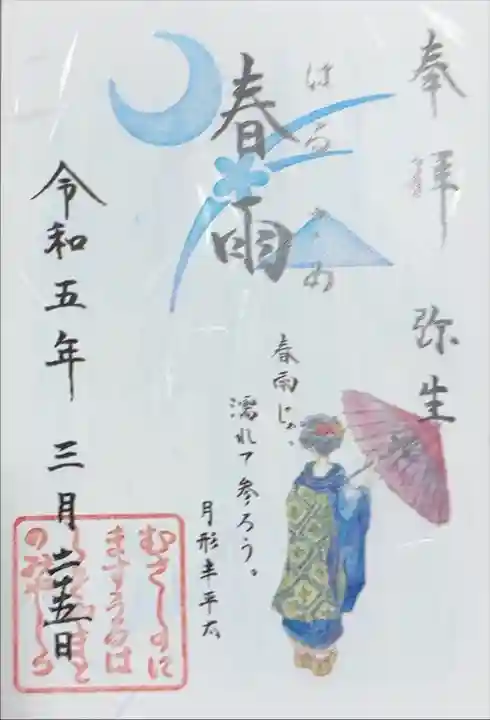 奉拝 弥生
はるさめ
春雨
春雨じゃ、
濡れて参ろう。
月形半平太
令和五年 三月 二十五日
むさしのに
ますうるは
のみやしろ